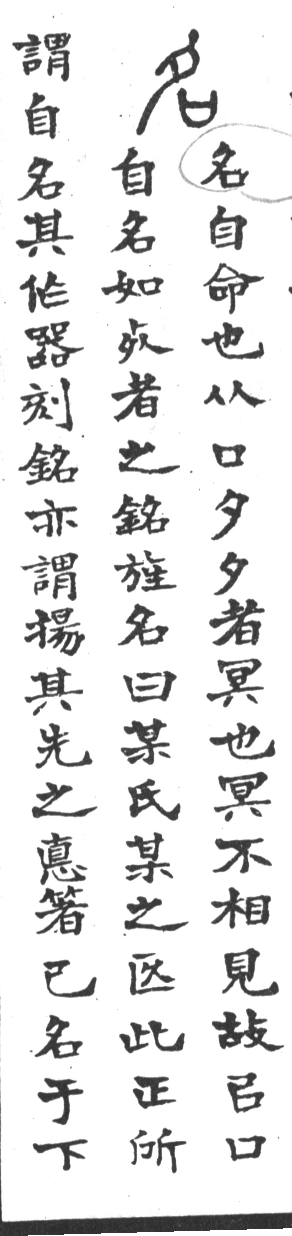 名
名自命也从口夕夕者冥也冥不相見故㠯口
自名如死者之銘旌名曰某氏某之医此正所
謂自名其作器刻銘亦謂揚其先之悳箸己名于下